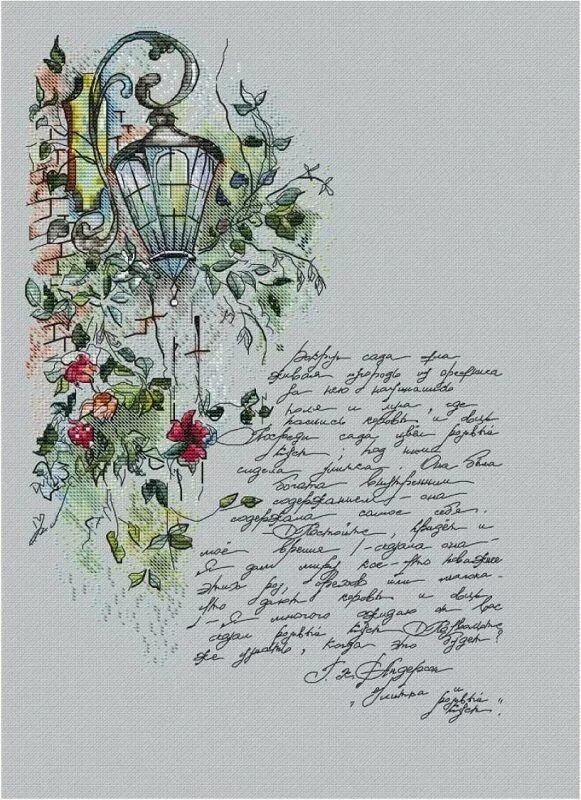 Вокруг сада шла
живая изгородь из орешника
За нею начинались
поля и луга, где
паслись коровы и овцы
Посреди сада цвёл розовый
куст, под ним
сидела улитка. Она была
богата внутренним
содержанием – она
содержала самоё себя.
– Постойте, придёт и
моё время! – сказала она –
Я дам миру кое-что поважнее
этих роз, орехов или молока
что дают коровы и овцы
– Я многого ожидаю от вас
сказал розовый куст – Позвольте
же узнать, когда это будет?
Г. Х. Андерсен
"Улитка и
розовый
куст"